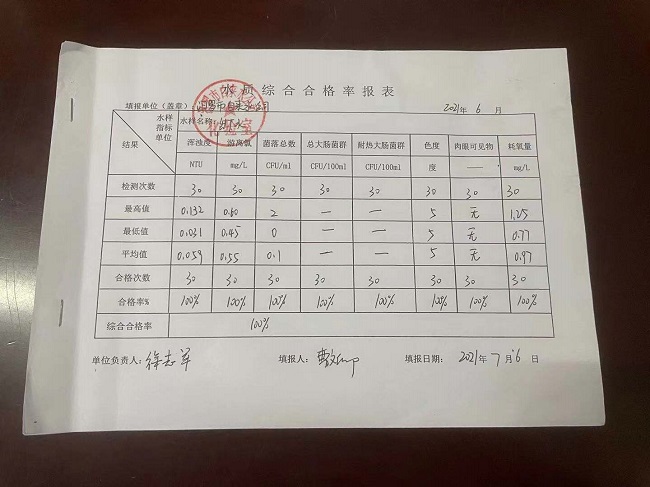 水质综合合格率报表
填报单位（盖章）： 市自来水公司 2021年 6 月
水样 水样名称： 出厂水
指标
单位 浑浊度 游离氯 菌落总数 总大肠菌群 耐热大肠菌群 色度 肉眼可见物 耗氧量
结果 NTU mg/L CFU/ml CFU/100ml CFU/100ml 度 —— mg/L
检测次数 30 30 30 30 30 30 30 30
最高值 0.132 0.60 2 — — 5 无 1.25
最低值 0.031 0.45 0 — — 5 无 0.77
平均值 0.059 0.55 0.1 — — 5 无 0.97
合格次数 30 30 30 30 30 30 30 30
合格率% 100% 100% 100% 100% 100% 100% 100% 100%
综合合格率 100%
单位负责人：徐志军 填报人： 填报日期： 2021年 7 月 6 日